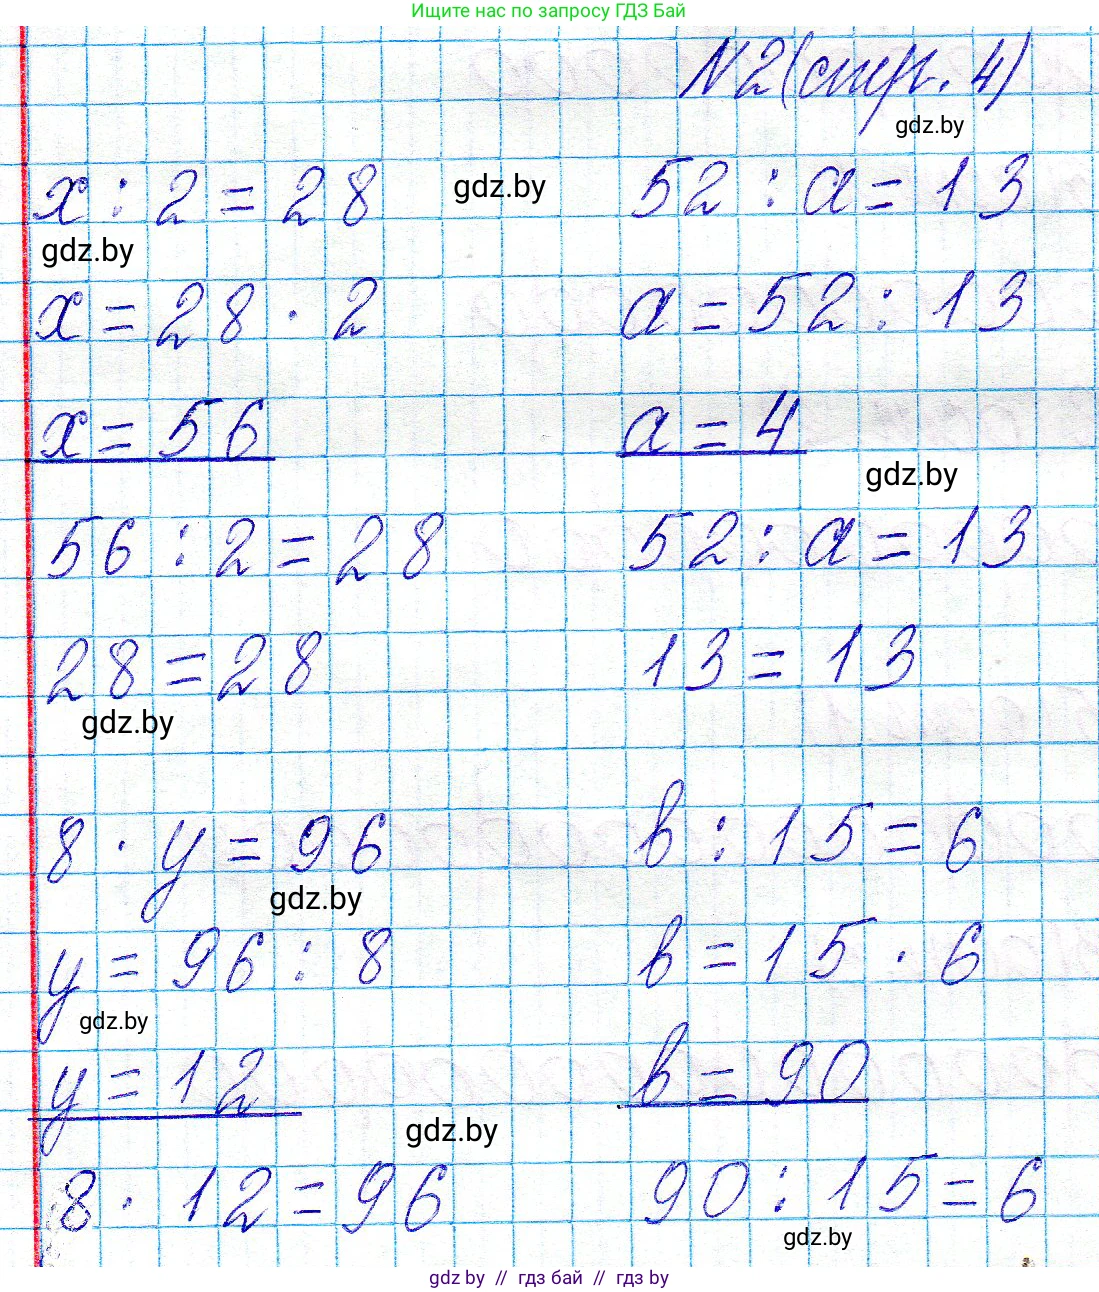 Ищите нас по запросу ГДЗ Бай
N2(стр. 4)
gdz.by
x : 2 = 28
gdz.by
52 : a = 13
gdz.by
x = 28 · 2
a = 52 : 13
x = 56
a = 4
gdz.by
56 : 2 = 28
52 : a = 13
28 = 28
13 = 13
gdz.by
8 · y = 96
в : 15 = 6
gdz.by
y = 96 : 8
в = 15 · 6
gdz.by
y = 12
в = 90
gdz.by
8 · 12 = 96
90 : 15 = 6
gdz.by
gdz by // гдз бай // гдз by